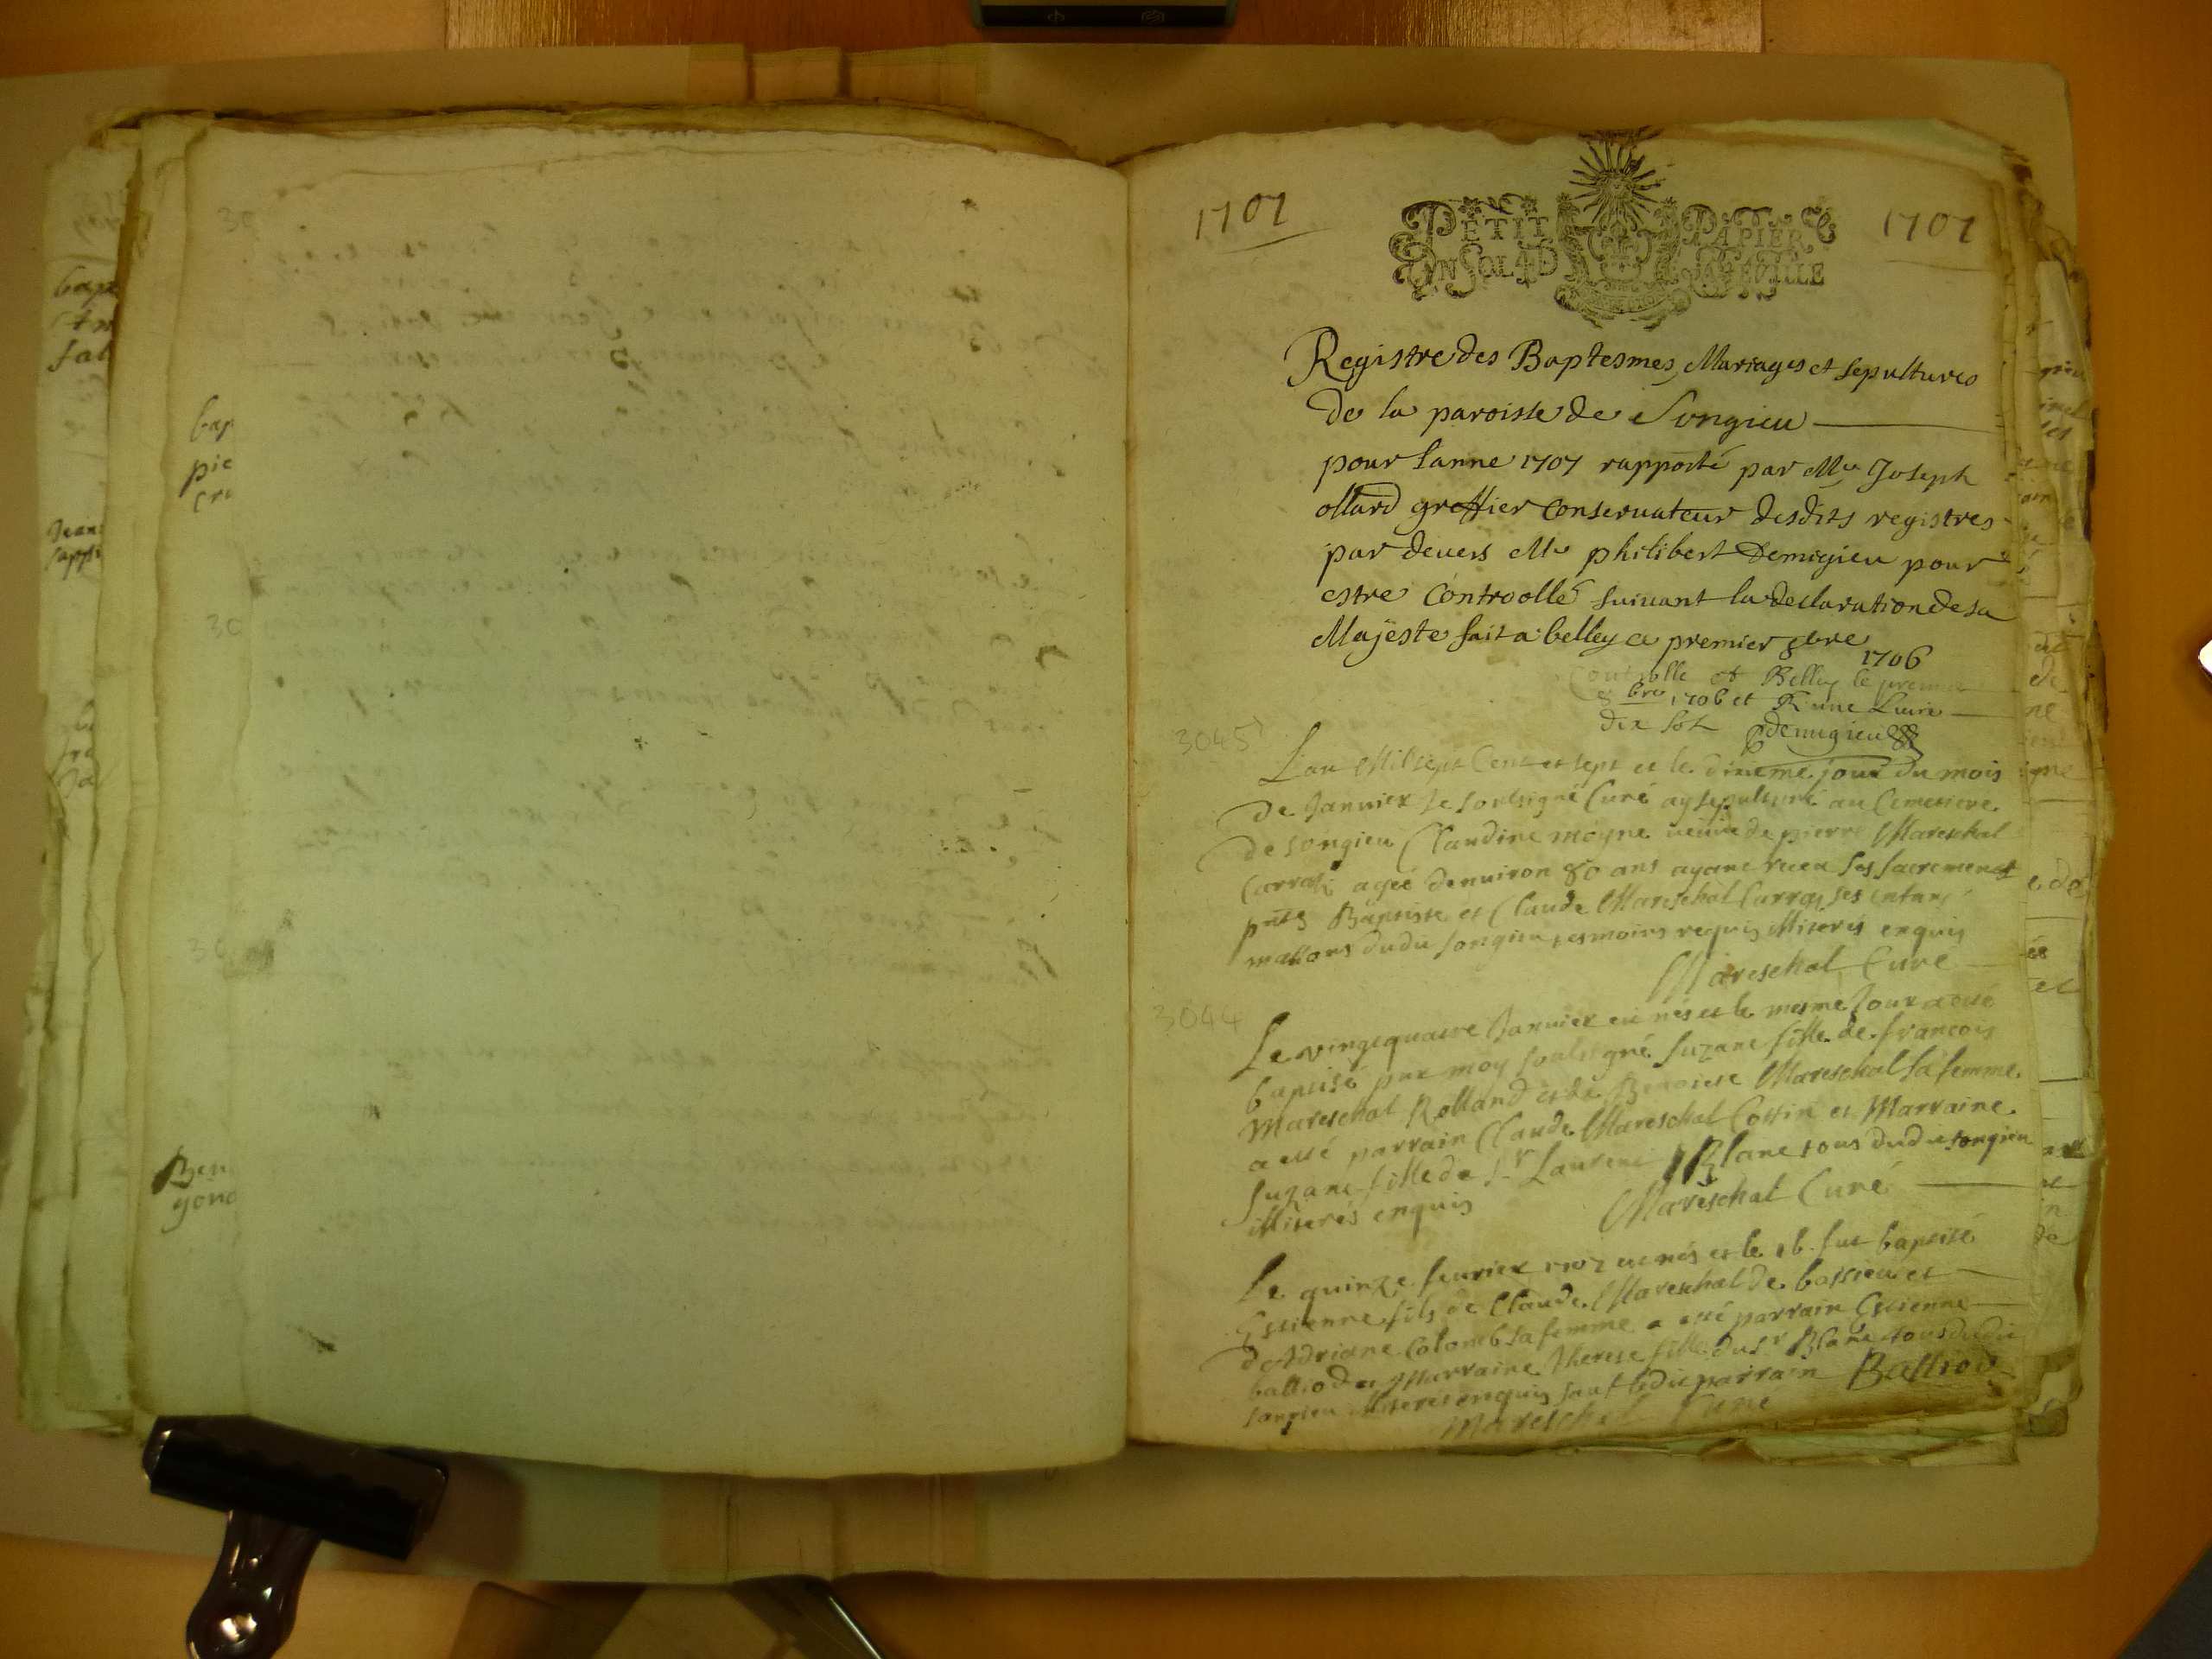 bap
bap
pie
Ben
gond
1707
1707
PETIT PAPIER
UN SOL LA FEUILLE
Registre des Baptesmes, Mariages et sepultures
De la paroisse de Songieu
pour lanne 1707 rapporté par Me Joseph
ollard greffier Conservateur desdits registres
par devers Me philibert Demigieu pour
estre Controollé suivant la declaration de sa
Majeste fait a belley ce premier 8bre
1706
Controlle et Belley le premier
8bre 1706 et R une Livre
dix sol Demigieu
3045
Lan Mil sept Cent et sept et le dixieme jour du mois
de Janvier Je soubsigné Curé ay sepulturé au Cemetiere
de Songieu Claudine moyne veuve de pierre Mareschal
agée denviron 80 ans ayant receu ses sacrements
pnts Baptiste et Claude Mareschal Carraz ses enfans
dudit songieu tesmoins requis illiterés enquis
Mareschal Curé
3044
Le vingt quatre Janvier est nés et le mesme Jour a esté
baptisé par moy soubsigné Suzane fille de francois
Mareschal Rolland et de Benoiste Mareschal sa femme
a esté parrain Claude Mareschal Cottin et Marraine
Suzane fille de Sr Laurent Blanc tous dudit songieu
illiterés enquis Mareschal Curé
Le quinze fevrier 1707 est nés et le 16 fut baptisé
Estienne fils de Claude Mareschal de bassieu et
dAdriane Colomb sa femme a esté parrain Estienne
balliod et Marraine Therese fille du Sr Blanc tous dudit
songieu illiteres enquis sauf ledit parrain Balliod
Mareschal Curé